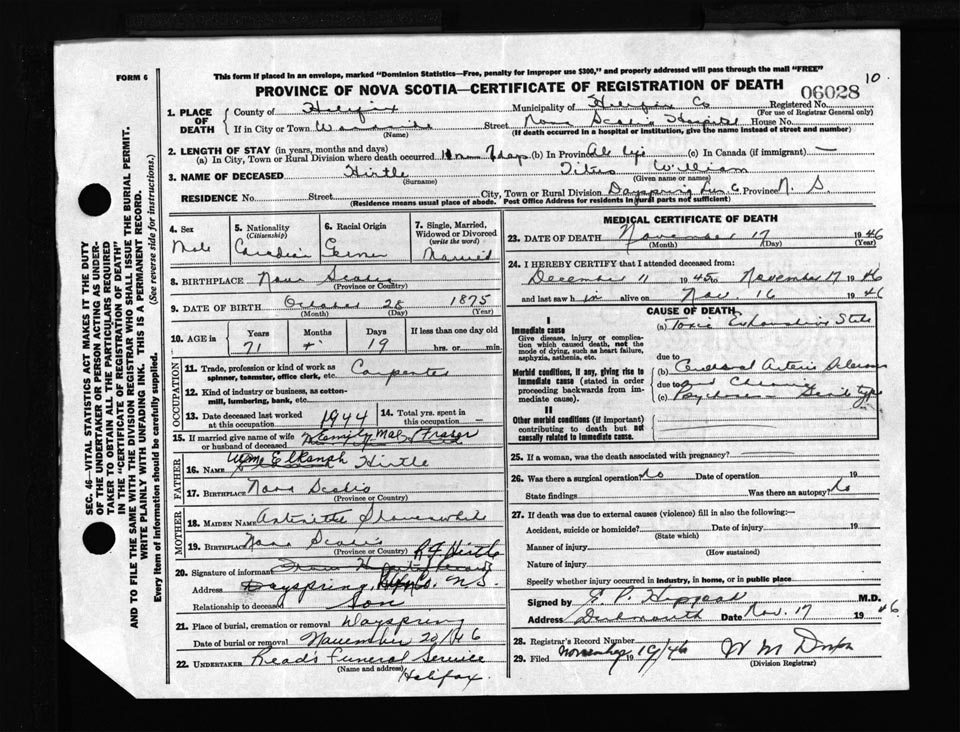 FORM 6
This form if placed in an envelope, marked "Dominion Statistics—Free, penalty for improper use $300," and properly addressed will pass through the mail "FREE"
10.
PROVINCE OF NOVA SCOTIA—CERTIFICATE OF REGISTRATION OF DEATH
06028
1. PLACE OF DEATH
County of Halifax Municipality of Halifax Co Registered No.
(For use of Registrar General only)
If in City or Town Street Nova Scotia Hospital House No.
(Name) (If death occurred in a hospital or institution, give the name instead of street and number)
2. LENGTH OF STAY (in years, months and days)
(a) In City, Town or Rural Division where death occurred 11 m 7 days (b) In Province (c) In Canada (if immigrant) —
3. NAME OF DECEASED Hirtle Titus William
(Surname) (Given name or names)
RESIDENCE No. Street City, Town or Rural Division Dayspring Province N. S.
(Residence means usual place of abode. Post Office Address for residents in rural parts not sufficient)
4. Sex
Male
5. Nationality
(Citizenship)
Canadian
6. Racial Origin
German
7. Single, Married, Widowed or Divorced
(write the word)
Married
8. BIRTHPLACE Nova Scotia
(Province or Country)
9. DATE OF BIRTH October 28 1875
(Month) (Day) (Year)
10. AGE in
Years 71
Months
Days 19
If less than one day old
hrs. or min.
OCCUPATION
11. Trade, profession or kind of work as Carpenter
spinner, teamster, office clerk, etc.
12. Kind of industry or business, as cotton-mill, lumbering, bank, etc.
13. Date deceased last worked at this occupation 1944
14. Total yrs. spent in this occupation —
15. If married give name of wife or husband of deceased Mae Fraser
FATHER
16. Name Wm Elkanah Hirtle
17. Birthplace Nova Scotia
(Province or Country)
MOTHER
18. Maiden Name
19. Birthplace Nova Scotia
(Province or Country)
20. Signature of informant Hirtle
Address Dayspring, N.S.
Relationship to deceased Son
21. Place of burial, cremation or removal Dayspring
Date of burial or removal November 20/46
22. UNDERTAKER Read's Funeral Service
(Name and address) Halifax.
MEDICAL CERTIFICATE OF DEATH
23. DATE OF DEATH November 17 1946
(Month) (Day) (Year)
24. I HEREBY CERTIFY that I attended deceased from:
December 11 1945 to November 17 1946
and last saw him alive on Nov. 16 1946
CAUSE OF DEATH
I
Immediate cause
Give disease, injury or complication which caused death, not the mode of dying, such as heart failure, asphyxia, asthenia, etc.
(a) Toxic Exhaustive State
due to
Morbid conditions, if any, giving rise to immediate cause (stated in order proceeding backwards from immediate cause).
(b) Cerebral Arterio Sclerosis
due to and Chronic
(c) Psychosis Senile type
II
Other morbid conditions (if important) contributing to death but not causally related to immediate cause.
25. If a woman, was the death associated with pregnancy?
26. Was there a surgical operation? No Date of operation 19
State findings Was there an autopsy? No
27. If death was due to external causes (violence) fill in also the following:—
Accident, suicide or homicide? Date of injury 19
(State which)
Manner of injury
(How sustained)
Nature of injury
Specify whether injury occurred in industry, in home, or in public place
Signed by M.D.
Address Dartmouth Date Nov. 17 1946
28. Registrar's Record Number
29. Filed November 19/46
(Division Registrar)
SEC. 46—VITAL STATISTICS ACT MAKES IT THE DUTY
OF THE UNDERTAKER OR PERSON ACTING AS UNDER-
TAKER TO OBTAIN ALL THE PARTICULARS REQUIRED
IN THE "CERTIFICATE OF REGISTRATION OF DEATH"
AND TO FILE THE SAME WITH THE DIVISION REGISTRAR WHO SHALL ISSUE THE BURIAL PERMIT.
WRITE PLAINLY WITH UNFADING INK. THIS IS A PERMANENT RECORD.
Every item of information should be carefully supplied. (See reverse side for instructions.)